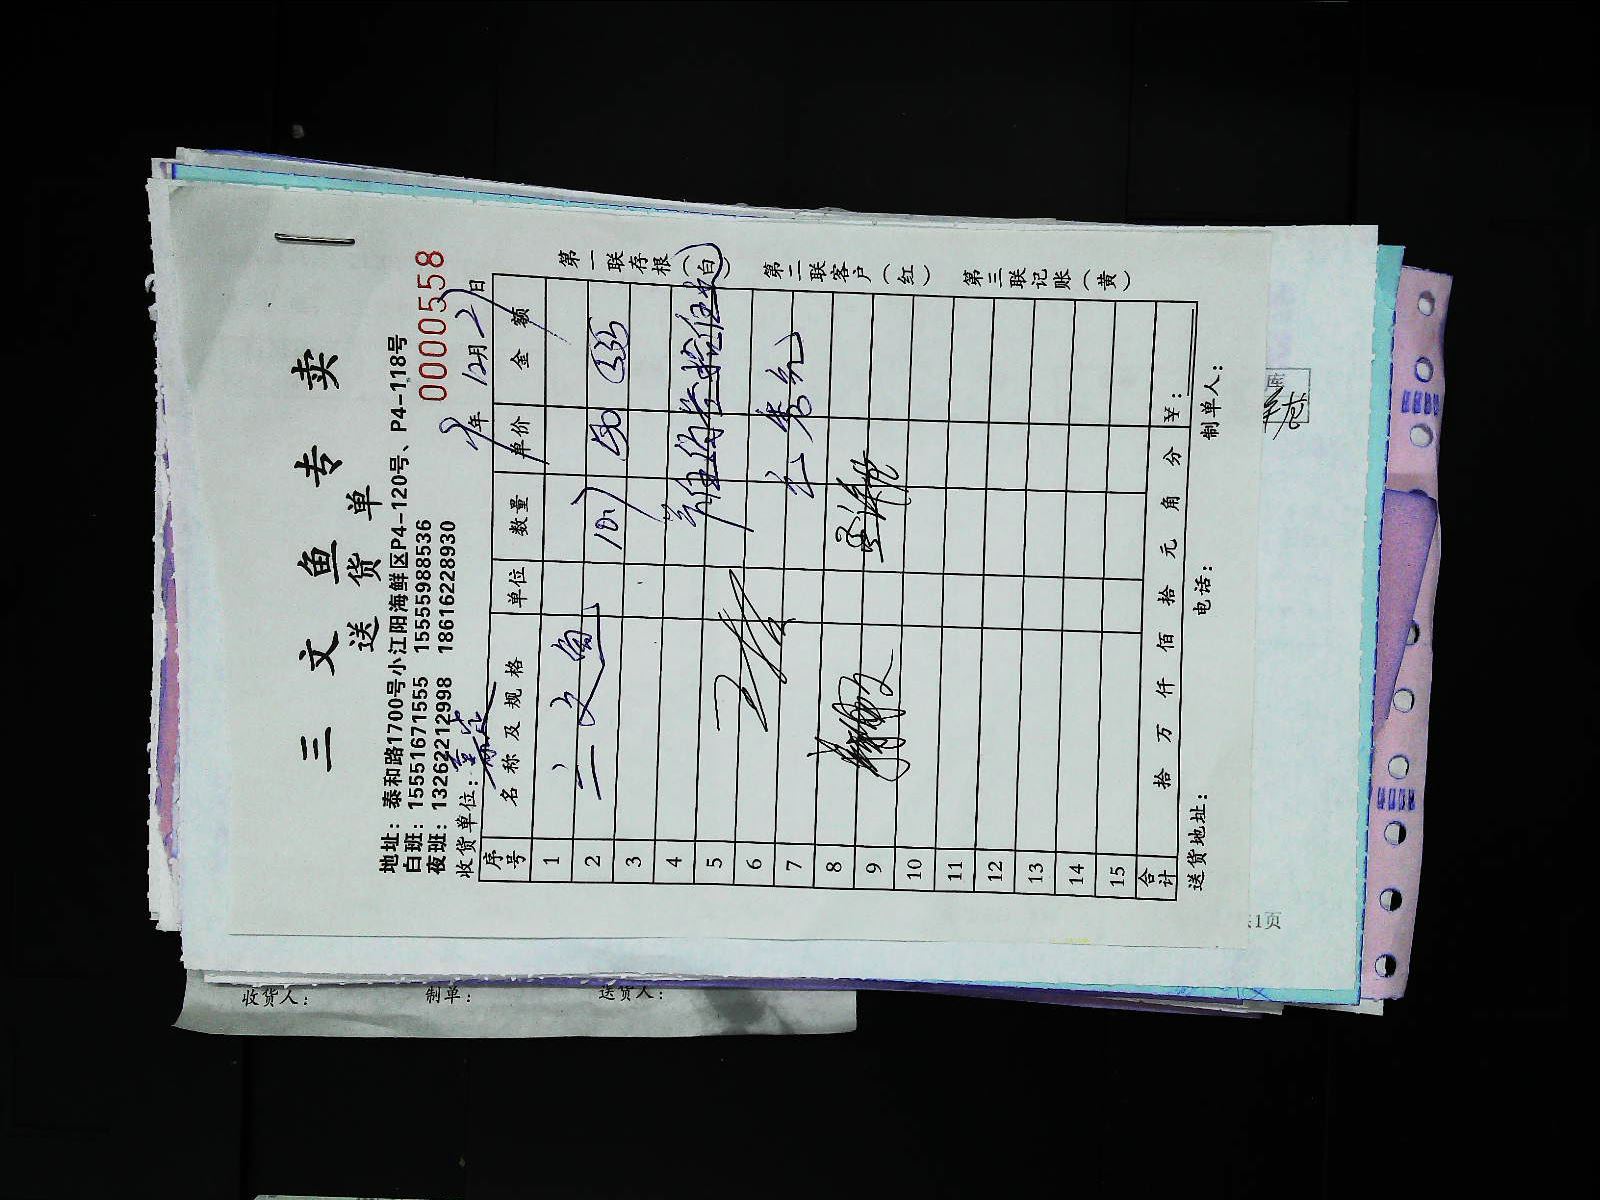 三文鱼专卖
送货单
地址：泰和路1700号小江阳海鲜区P4-120号、P4-118号
白班：15551671555 15555988536
夜班：13262212998 18616228930
0000558
收货单位： 年12月2日
序号 名称及规格 单位 数量 单价 金额
1
2 三文鱼 50
3
4
5
6
7
8
9
10
11
12
13
14
15
合计 拾 万 仟 佰 拾 元 角 分 ￥：
送货地址： 电话： 制单人：
第一联存根（白）
第二联客户（红）
第三联记账（黄）
收货人： 制单： 送货人：
1页